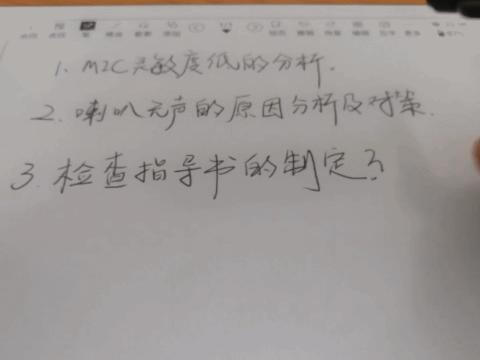 1. MIC灵敏度低的分析.
2. 喇叭无声的原因分析及对策.
3. 检查指导书的制定?